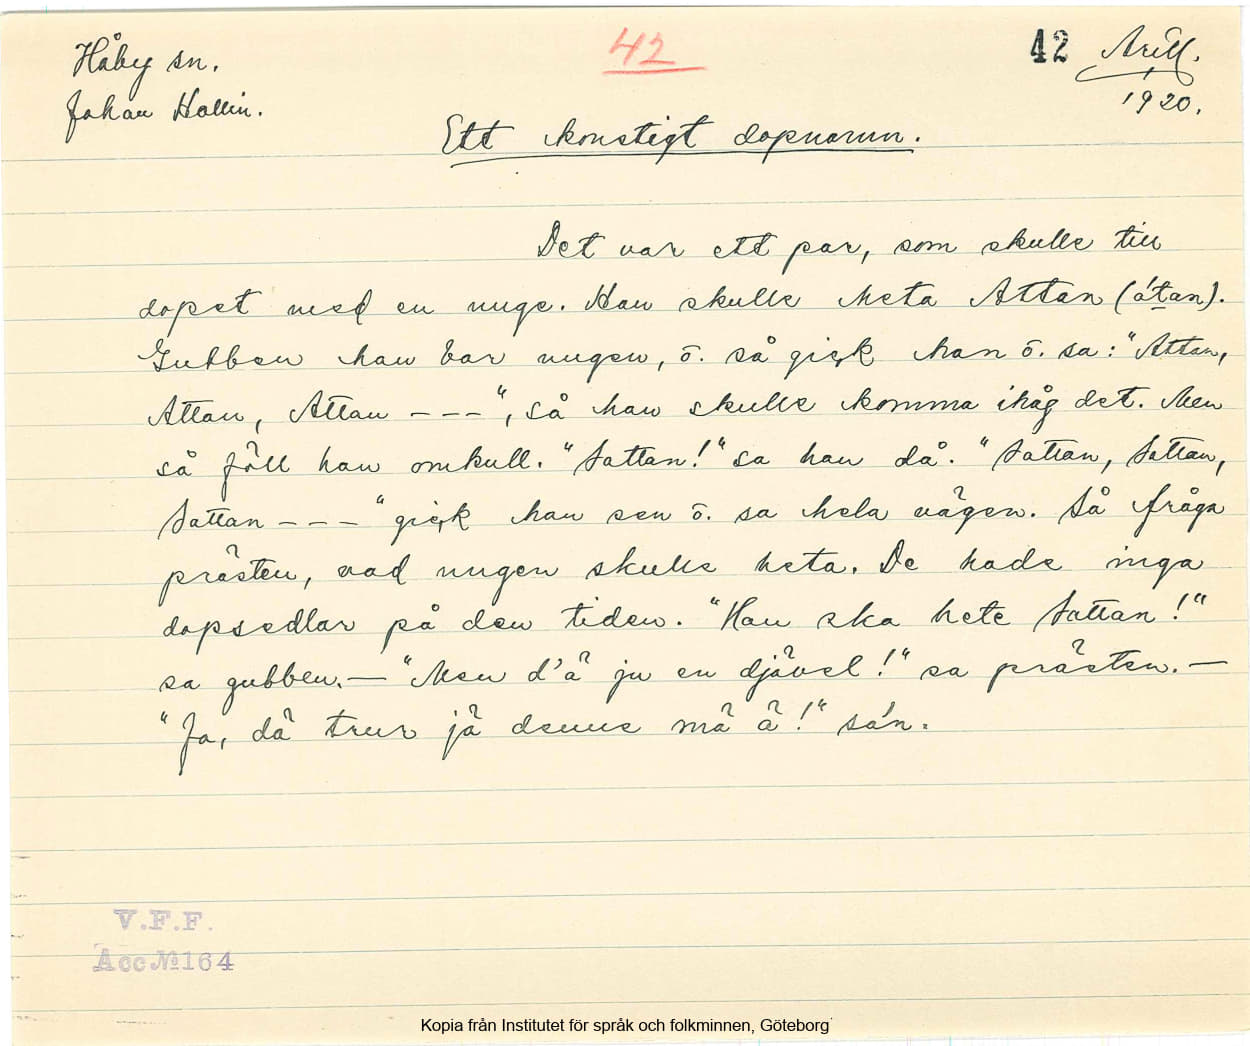 Håby sn.
Johan Hallin.
42
42 Arill.
1920.
Ett konstigt dopnamn.
Det var ett par, som skulle till
dopet med en unge. Han skulle heta Attan (átan).
Gubben han bar ungen, ō. så gick han ō. sa: "Attan,
Attan, Attan – – –", så han skulle komma ihåg det. Men
så föll han omkull. "Sattan!" sa han då. "Sattan, Sattan,
Sattan – – –" gick han sen ō. sa hela vägen. Så fråga
prästen, vad ungen skulle heta. De hade inga
dopsedlar på den tiden. "Han ska hete Sattan!"
sa gubben. – "Men d'ä ju en djävel!" sa prästen. –
"Ja, dä trur jä denne mä ä!" sa'n.
V.F.F.
Acc №164
Kopia från Institutet för språk och folkminnen, Göteborg